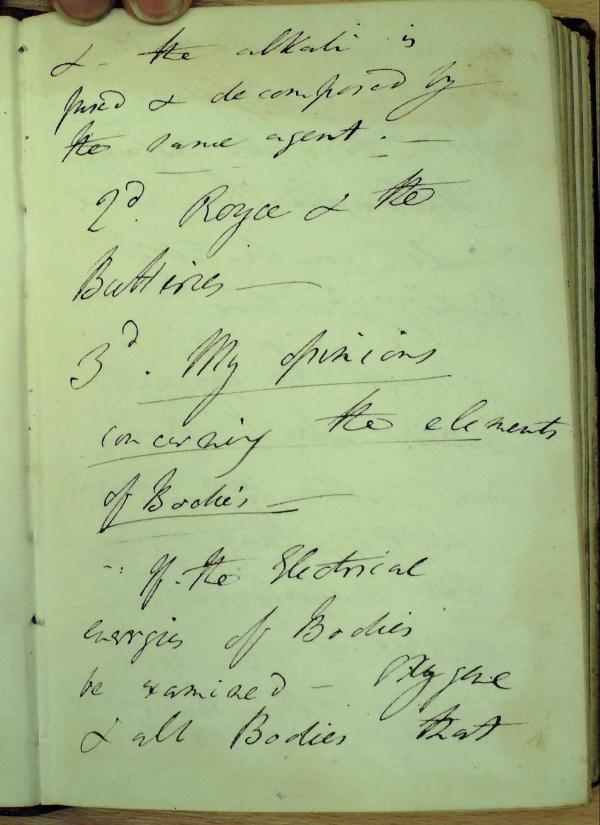 & - the alkali is
fused & decomposed by
the same agent. —
2d. Royce & the
Batteries —
3d. My opinions
concerning the elements
of Bodies —
If the Electrical
energies of Bodies
be examined - Oxygene
& all Bodies that